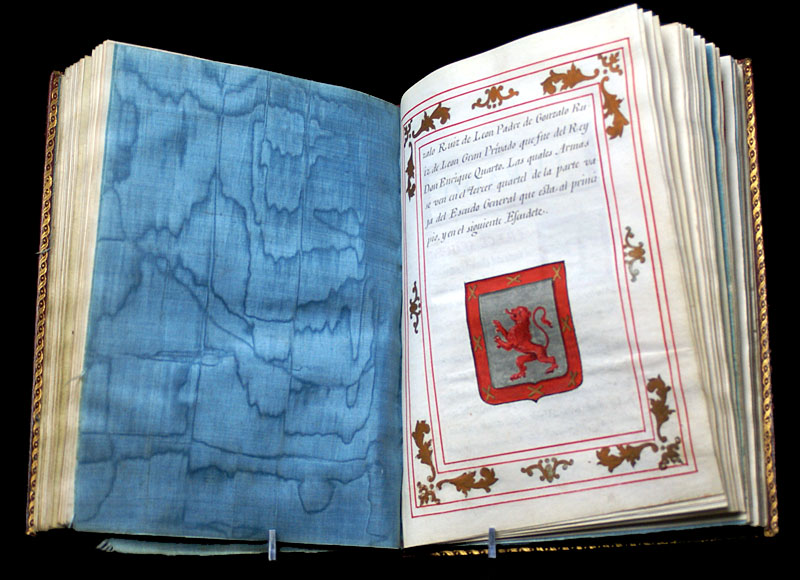 zalo Ruiz de Leon Padre de Gonzalo Ru
iz de Leon Gran Privado que fue del Rey
Don Enrique Quarto. Las quales Armas
se ven en el tercer quartel de la parte va
ja del Escudo General que esta al princi
pio, y en el siguiente Escudete.